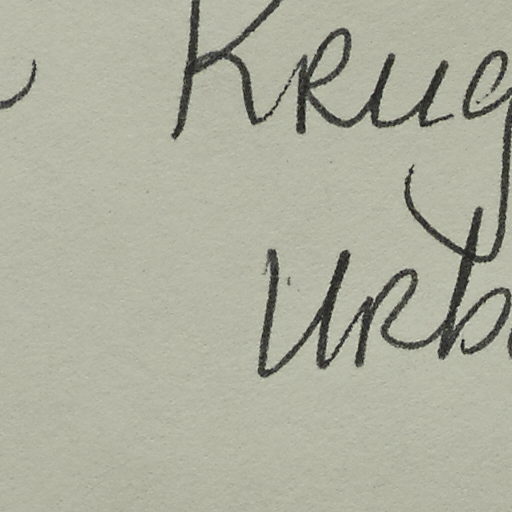 Krug
Urb